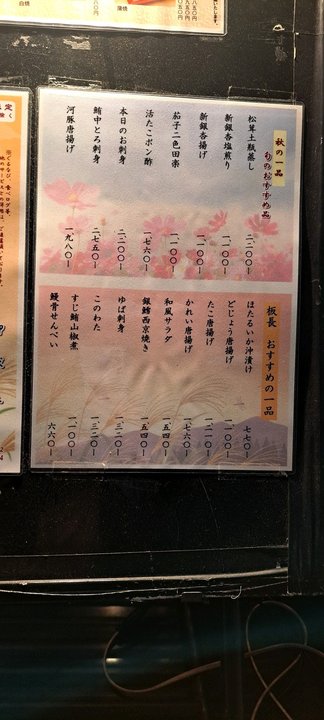 白焼
蒲焼
秋の一品
旬のおすすめ品
松茸土瓶蒸し 二、二〇〇ー
新銀杏塩煎り 一、一〇〇ー
新銀杏揚げ 一、一〇〇ー
茄子二色田楽 一、一〇〇ー
活たこポン酢 一、七六〇ー
本日のお刺身 二、二〇〇ー
鮪中とろ刺身 二、七五〇ー
河豚唐揚げ 一、九八〇ー
板長 おすすめの一品
ほたるいか沖漬け 七七〇ー
どじょう唐揚げ 一、一〇〇ー
たこ唐揚げ 一、二一〇ー
かれい唐揚げ 一、七六〇ー
和風サラダ 一、五四〇ー
銀鱈西京焼き 一、五四〇ー
ゆば刺身 一、三二〇ー
このわた 一、三二〇ー
すじ鮪山椒煮 一、一〇〇ー
鰻骨せんべい 六六〇ー